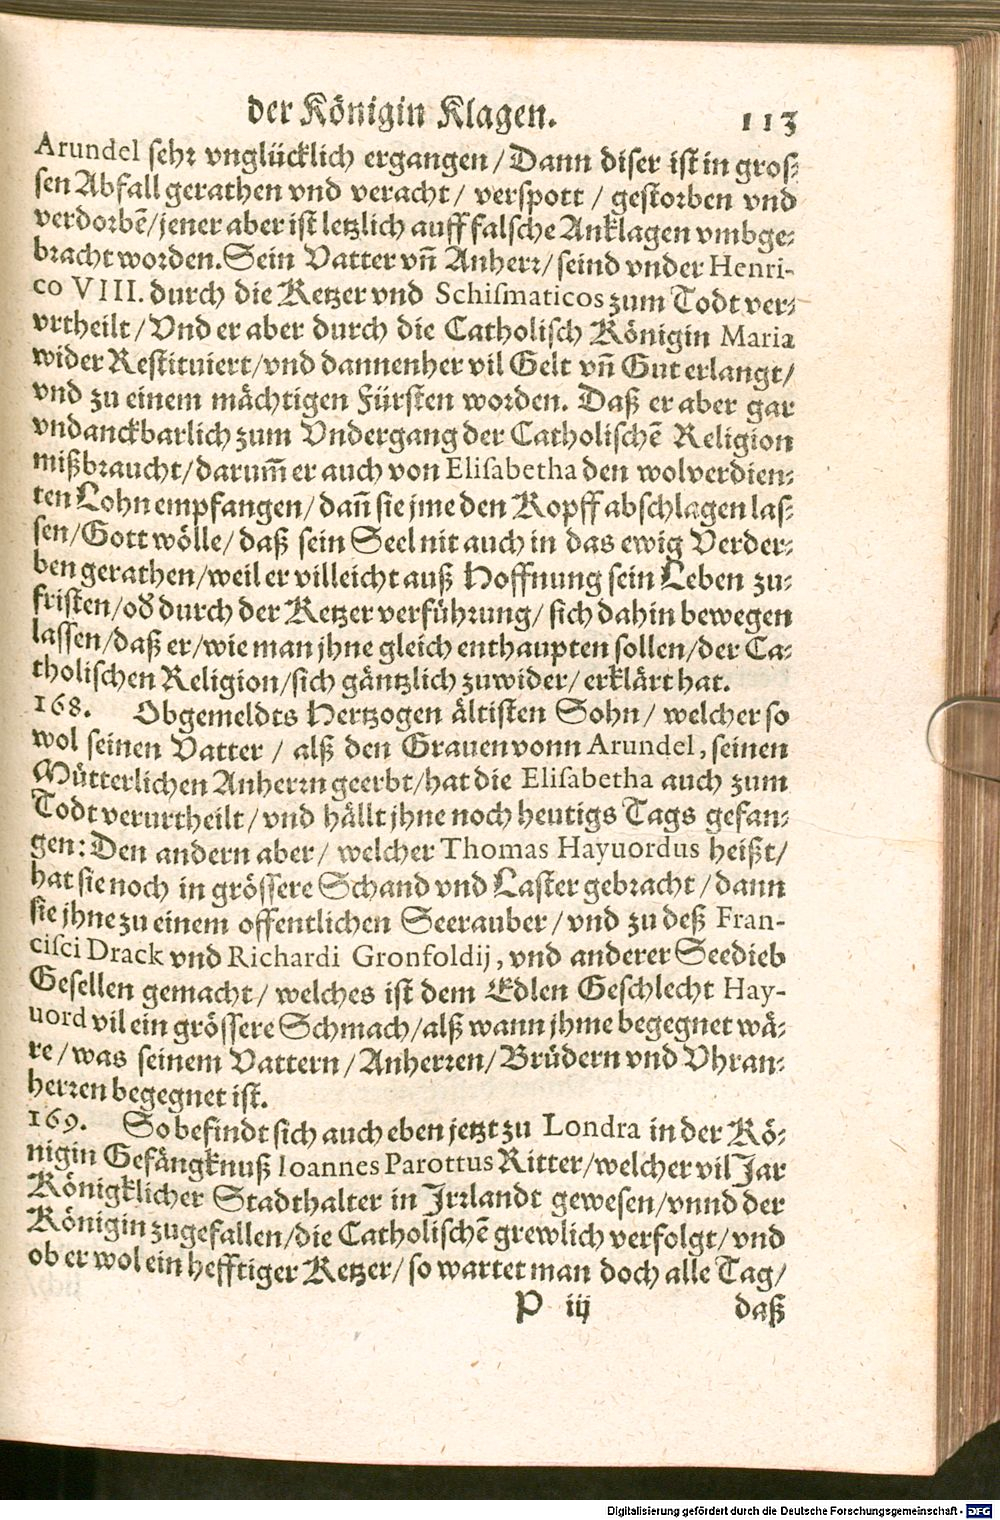 der Königin Klagen. 113
Arundel sehr vnglücklich ergangen / Dann diser ist in gros-
sen Abfall gerathen vnd veracht / verspott / gestorben vnd
verdorbẽ / jener aber ist letzlich auff falsche Anklagen vmbge-
bracht worden. Sein Vatter vñ Anherr / seind vnder Henri-
co VIII. durch die Ketzer vnd Schismaticos zum Todt ver-
vrtheilt / Vnd er aber durch die Catholisch Königin Maria
wider Restituiert / vnd dannenher vil Gelt vñ Gut erlangt /
vnd zu einem mächtigen Fürsten worden. Daß er aber gar
vndanckbarlich zum Vndergang der Catholischẽ Religion
mißbraucht / darum̃ er auch von Elisabetha den wolverdien-
ten Lohn empfangen / dañ sie jme den Kopff abschlagen las-
sen / Gott wölle / daß sein Seel nit auch in das ewig Verder-
ben gerathen / weil er villeicht auß Hoffnung sein Leben zu-
fristen / oð durch der Ketzer verführung / sich dahin bewegen
lassen / daß er / wie man jhne gleich enthaupten sollen / der Ca-
tholischen Religion / sich gäntzlich zuwider / erklärt hat.
168. Obgemeldts Hertzogen ältisten Sohn / welcher so
wol seinen Vatter / alß den Grauen vonn Arundel, seinen
Mütterlichen Anherrn geerbt / hat die Elisabetha auch zum
Todt verurtheilt / vnd hällt jhne noch heutigs Tags gefan-
gen: Den andern aber / welcher Thomas Hayuordus heißt /
hat sie noch in grössere Schand vnd Laster gebracht / dann
sie jhne zu einem offentlichen Seerauber / vnd zu deß Fran-
cisci Drack vnd Richardi Gronfoldij, vnd anderer Seedieb
Gesellen gemacht / welches ist dem Edlen Geschlecht Hay-
uord vil ein grössere Schmach / alß wann jhme begegnet wä-
re / was seinem Vattern / Anherren / Brüdern vnd Vhran-
herren begegnet ist.
169. So befindt sich auch eben jetzt zu Londra in der Kö-
nigin Gefängknuß Ioannes Parottus Ritter / welcher vil Jar
Königklicher Stadthalter in Jrrlandt gewesen / vnnd der
Königin zugefallen / die Catholischẽ grewlich verfolgt / vnd
ob er wol ein hefftiger Ketzer / so wartet man doch alle Tag /
P iij daß
Digitalisierung gefördert durch die Deutsche Forschungsgemeinschaft - DFG